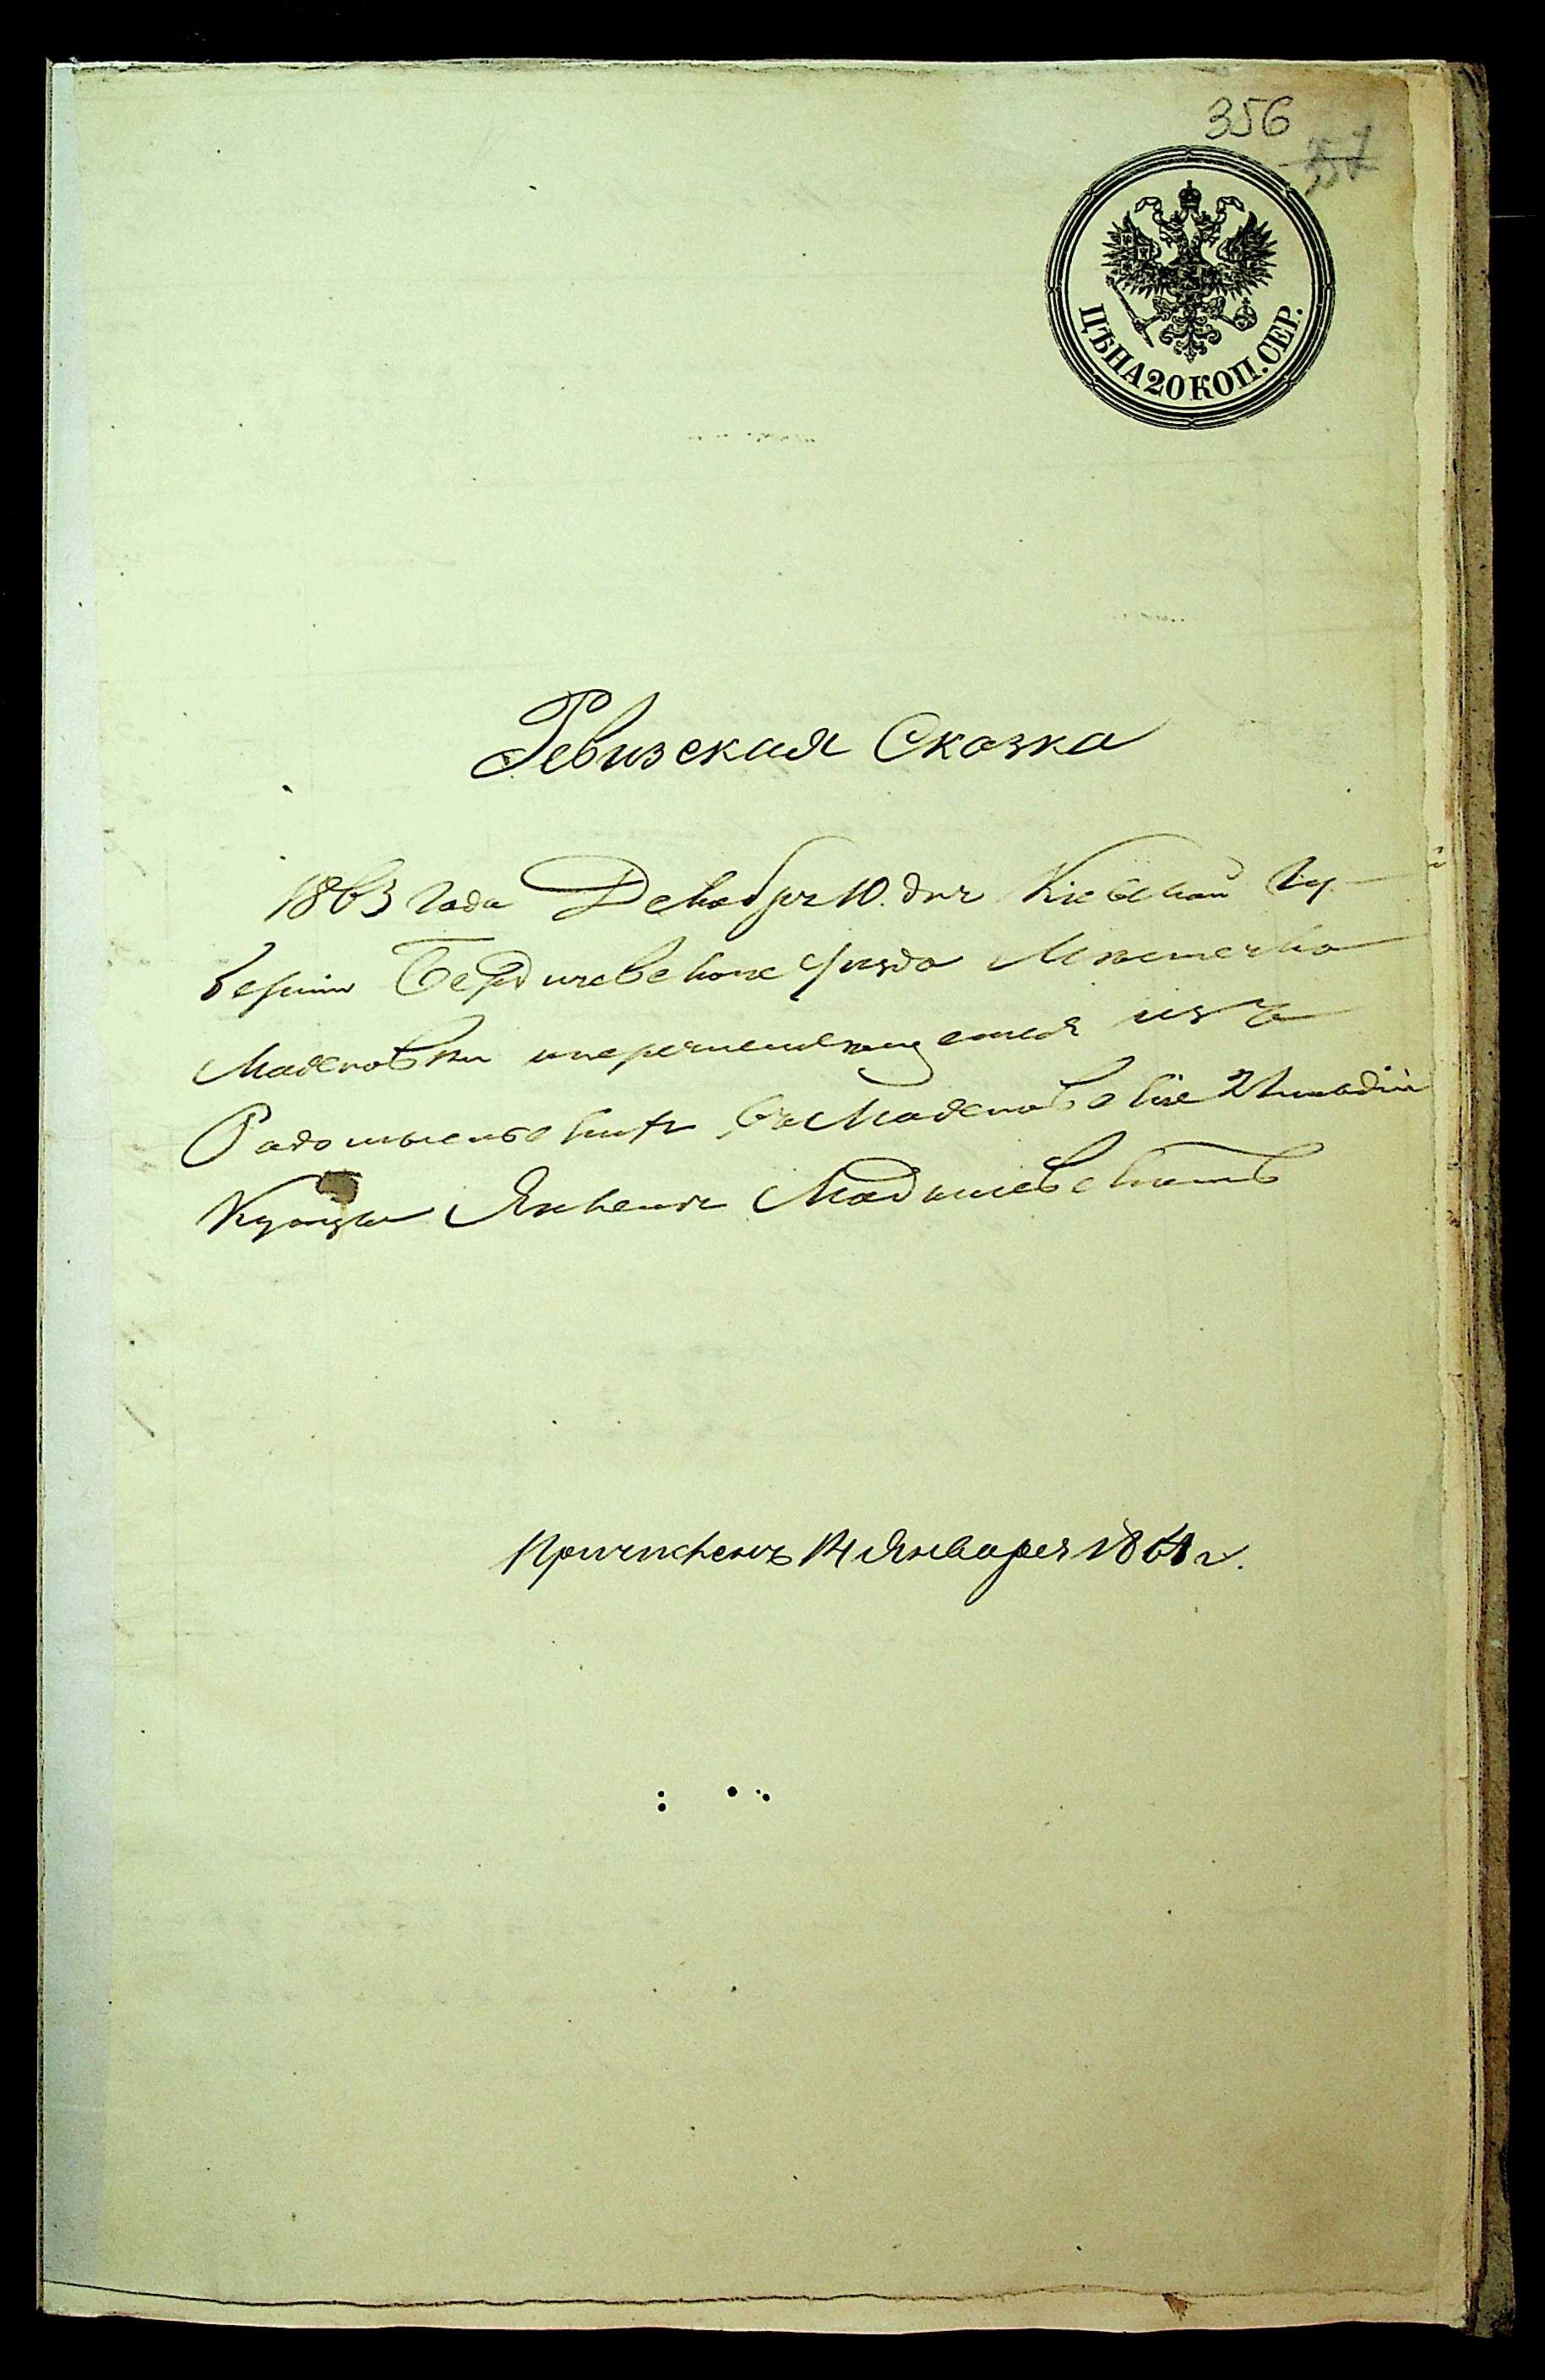 356
357
ЦѢНА 20 КОП. СЕР.
Ревизская Сказка
1863 года Декабря 10. дня Кіевской Гу-
берніи Бердичевскаго уѣзда Мѣстечка
Махновки перечисляющегося изъ
Радомысльскихъ въ Махновскіе 2 гильдіи
Купцы
Причисленъ 14 Января 1864 г.